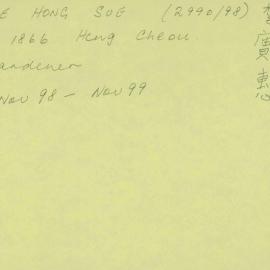 E HONG SUE (2990/98)
1866 Hong Cheou.
andener
Nov 98 - Nov 99
李廣惠